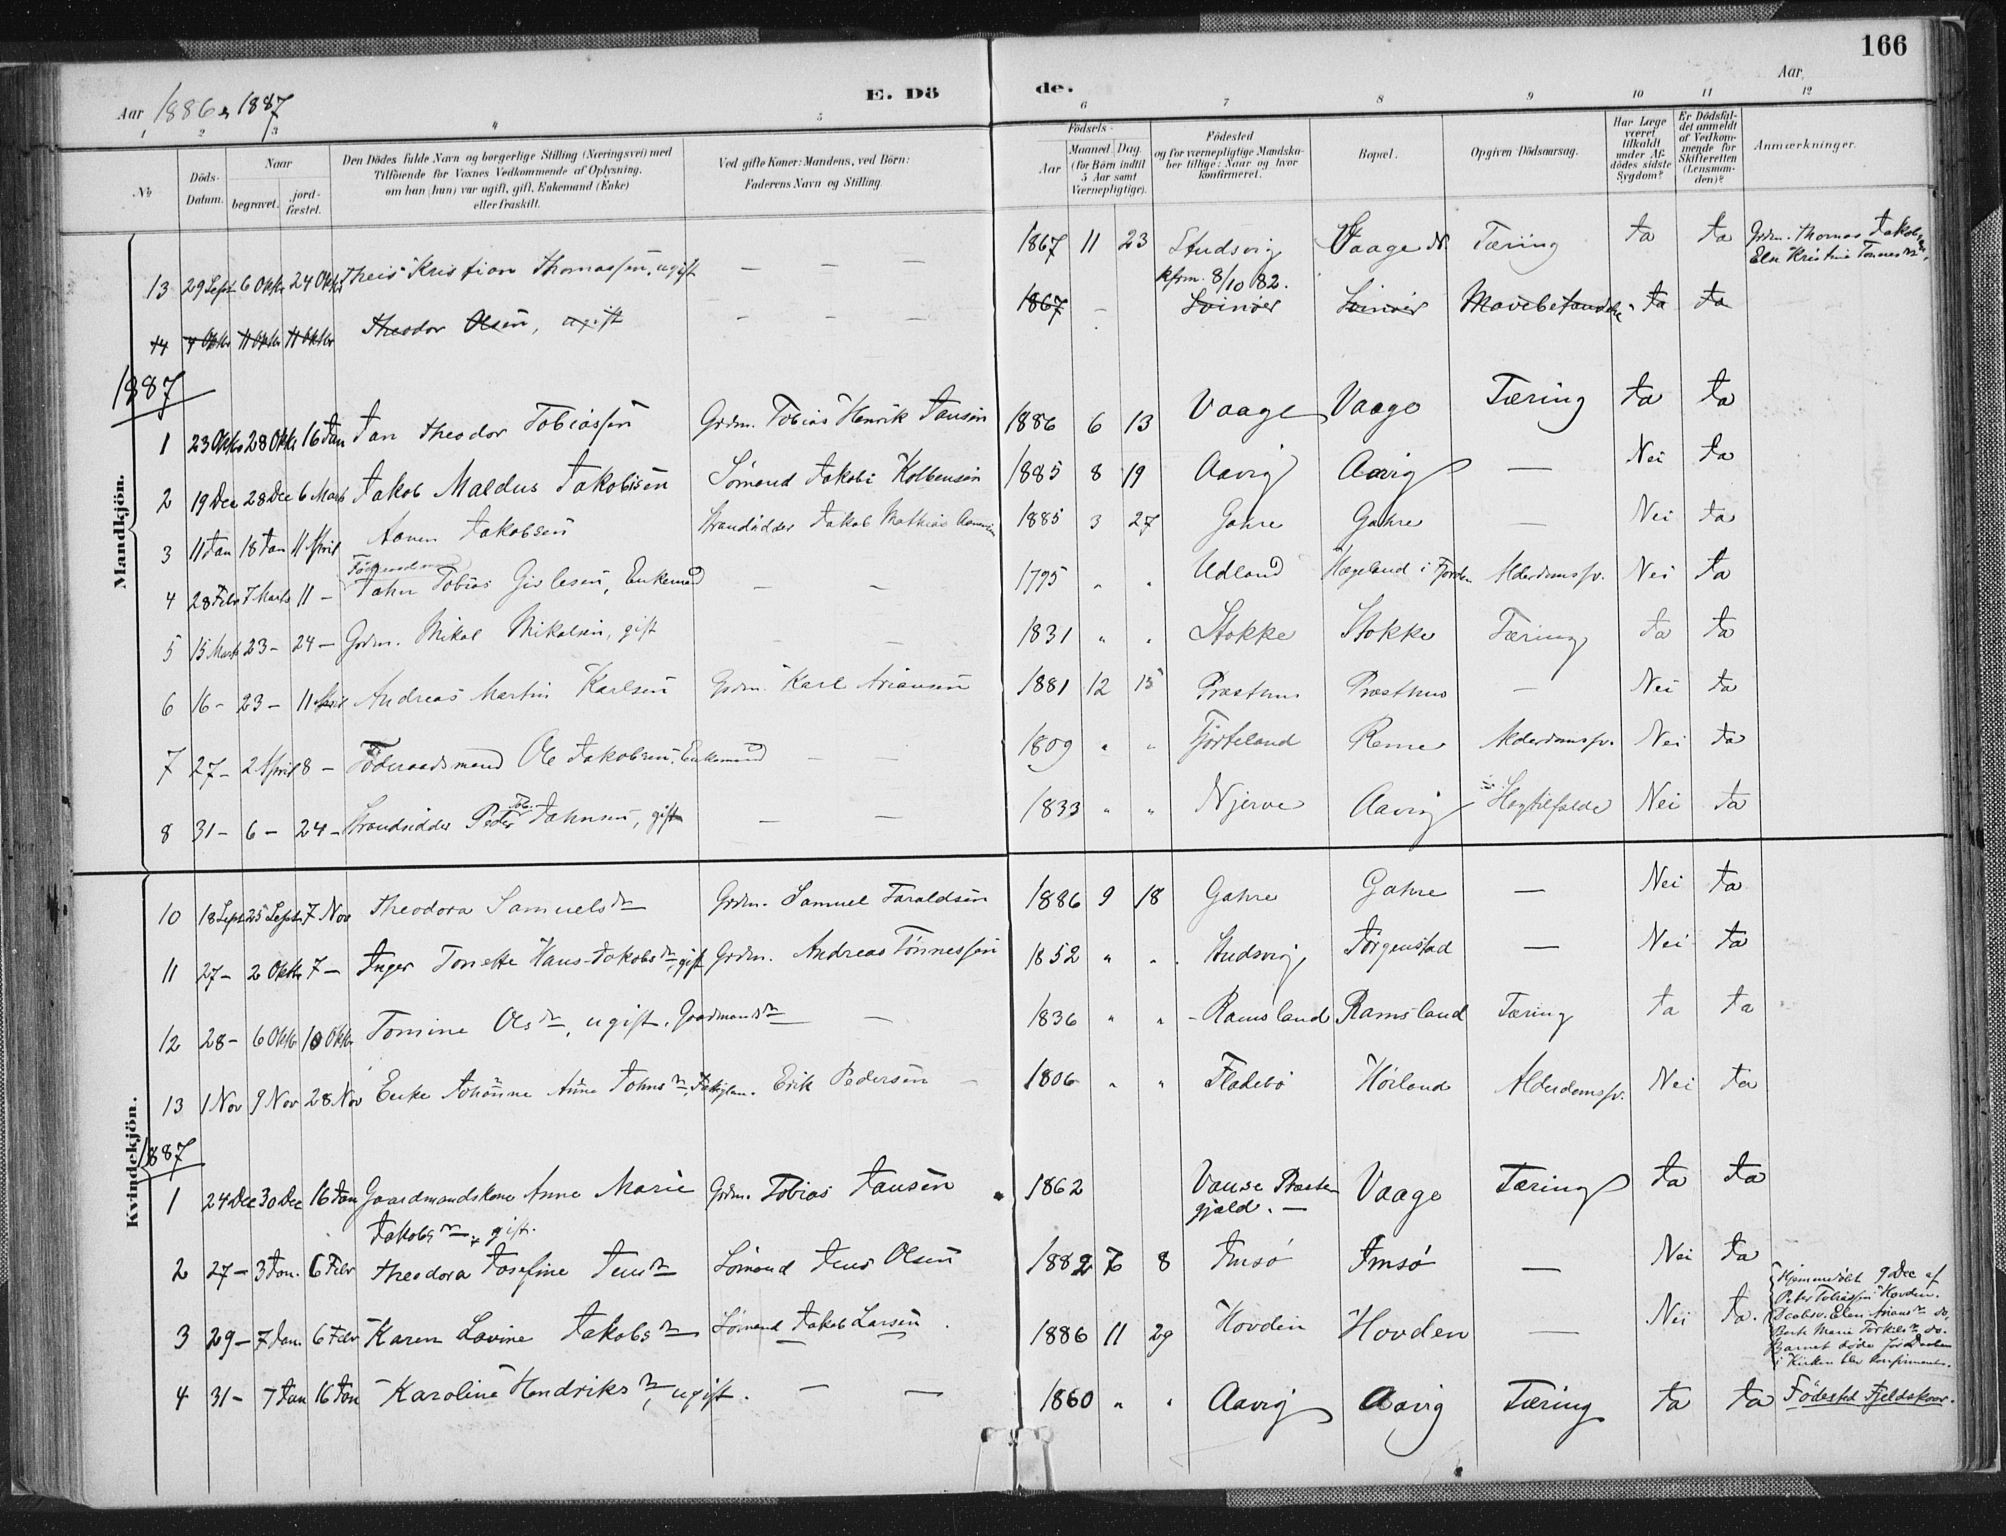 166
Aar 1886 & 1887
E. Dö de.
Aar
1 2 3 4 5 6 7 8 9 10 11 12
№
Döds-Datum.
Naar
begravet.
jord-fæstet.
Den Dödes fulde Navn og borgerlige Stilling (Næringsvei) med
Tilföiende for Voxnes Vedkommende af Oplysning,
om han (hun) var ugift, gift, Enkemand (Enke)
eller fraskilt.
Ved gifte Koner: Mandens, ved Börn:
Faderens Navn og Stilling.
Födsels-
Aar
Maaned. Dag.
(for Börn indtil
5 Aar samt
Værnepligtige).
Födested
og for værnepligtige Mandska-
ber tillige: Naar og hvor
konfirmeret.
Bopæl.
Opgiven Dödsaarsag.
Har Læge
været
tilkaldt
under Af-
dödes sidste
Sygdom?
Er Dödsfal-
det anmeldt
af Vedkom-
mende for
Skifteretten
(Lensman-
den)?
Anmærkninger.
Mandkjön.
13 29 Sept 6 Oktbr 24 Oktbr Theis Kristian Thomassen, ugift — — — 1867 11 23 Studsvig Vaage N. Tæring Ja Ja Grdm. Thomas Jakobsen
Konfirm. 8/10 82. Elen Kristine Tønnesdtr,
14 4 Oktbr 11 Oktbr 11 Oktbr Theodor Olsen, ugift - - - 1867 - Svinøer Svinøer Mavebetændelse Ja Ja
1887
1 23 Oktbr 28 Oktbr 16 Jan Jan Theodor Tobiassen Grdm. Tobias Henrik Jansen 1886 6 13 Vaage Vaage Tæring Ja Ja
2 19 Dec 28 Dec 6 Marts Jakob Maldus Jakobsen Sømand Jakob Kolbensen 1885 8 19 Aavig Aavig — Nei Ja
3 11 Jan 18 Jan 11 April Aanen Jakobsen Strandsidder Jakob Mathias Aanensen 1885 3 27 Gahre Gahre — Nei Ja
Föderaadsmand
4 28 Febr 7 Marts 11 - Jahn Tobias Givlesen, Enkemand - - 1795 " " Udland Hægeland i Fjorden Alderdomssv. Nei Ja
5 15 Marts 23 - 24 - Grdm. Mikal Mikalsen, gift - - 1831 " " Stokke Stokke Tæring Ja Ja
6 16 - 23 - 11 April Andreas Martin Karlsen Grdm. Karl Ariansen 1881 12 15 Præsthus Præsthus — Nei Ja
7 27 - 2 April 8 - Föderaadsmand Ole Jakobsen, Enkemand - - 1809 " " Fjorteland Reme Alderdomssv. Nei Ja
8 31 - 6 - 24 - Strandsidder Peder Jahnsen, gift - - 1833 " " Njerve Aavig Hastilfælde Nei Ja
Kvindekjön.
10 18 Sept 25 Sept 7 Nov Theodora Samuelsdtr Grdm. Samuel Taraldsen 1886 9 18 Gahre Gahre — Nei Ja
11 27 - 2 Oktbr 7 - Inger Tonette Hans-Jakobsdtr, gift Grdm. Andreas Tönnessen 1852 " " Studsvig Jörgenstad — Nei Ja
12 28 - 6 Oktbr 10 Oktbr Tomine Olsdtr, ugift, Gaardmandsdtr — 1836 " " Ramsland Ramsland Tæring Ja Ja
13 1 Nov 9 Nov 28 Nov Enke Johanne Anne Johnsdtr, Fattiglem. Erik Pedersen - 1806 " " Fladebö Hörland Alderdomssv. Nei Ja
1887
1 24 Dec 30 Dec 16 Jan Gaardmandskone Anne Marie Grdm. Tobias Jansen 1862 Vanse Præste- Vaage Tæring Ja Ja
Jakobsdtr, gift. gjæld. —
2 27 - 3 Jan. 6 Febr Theodora Josefine Jensdtr Sømand Jens Olsen 1882 7 8 Imsö Imsö — Nei Ja
3 29 - 7 Jan. 6 Febr Karen Lovine Jakobsdtr Sømand Jakob Larsen 1886 11 29 Hovden Hovden — Nei Ja.
Hjemmedöbt 9 Dec af
Peter Tobiassen Hovden.
Elen Ariansdtr do,
Marie Torkilsdtr do.
Barnet döde för Daaben
i Kirken blev konfirmeret.
4 31 - 7 Jan 16 Jan Karoline Hendriksdtr, ugift. — — 1860 " " Aavig Aavig Tæring Ja Ja Födested Fjeldskaar.